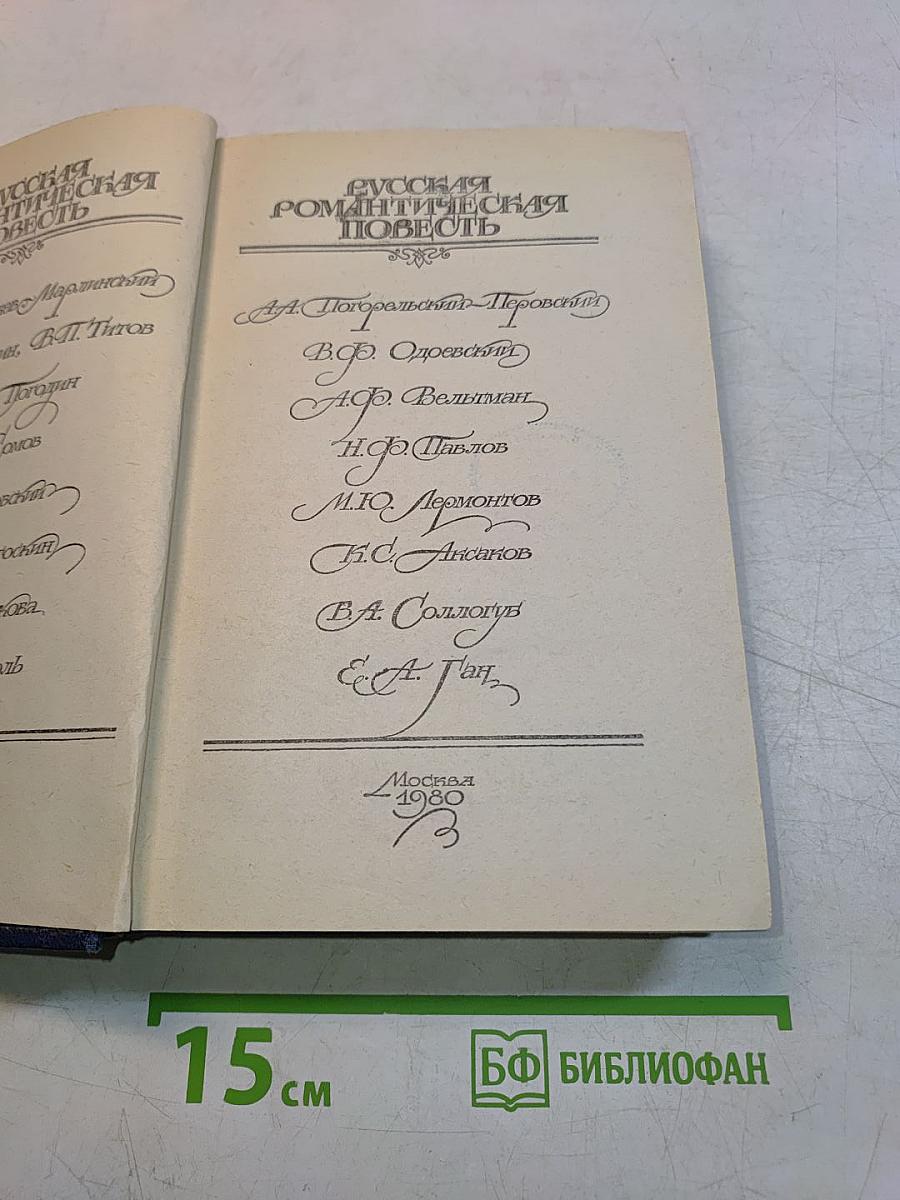 РУССКАЯ
РОМАНТИЧЕСКАЯ
ПОВЕСТЬ
Марлинский
В.П. Титов
Погодин
РУССКАЯ
РОМАНТИЧЕСКАЯ
ПОВЕСТЬ
А.А. Погорельский-Перовский
В.Ф. Одоевский
А.Ф. Вельтман
Н.Ф. Павлов
М.Ю. Лермонтов
К.С. Аксаков
В.А. Соллогуб
Е.А. Ган
Москва
1980
15 см
БФ БИБЛИОФАН